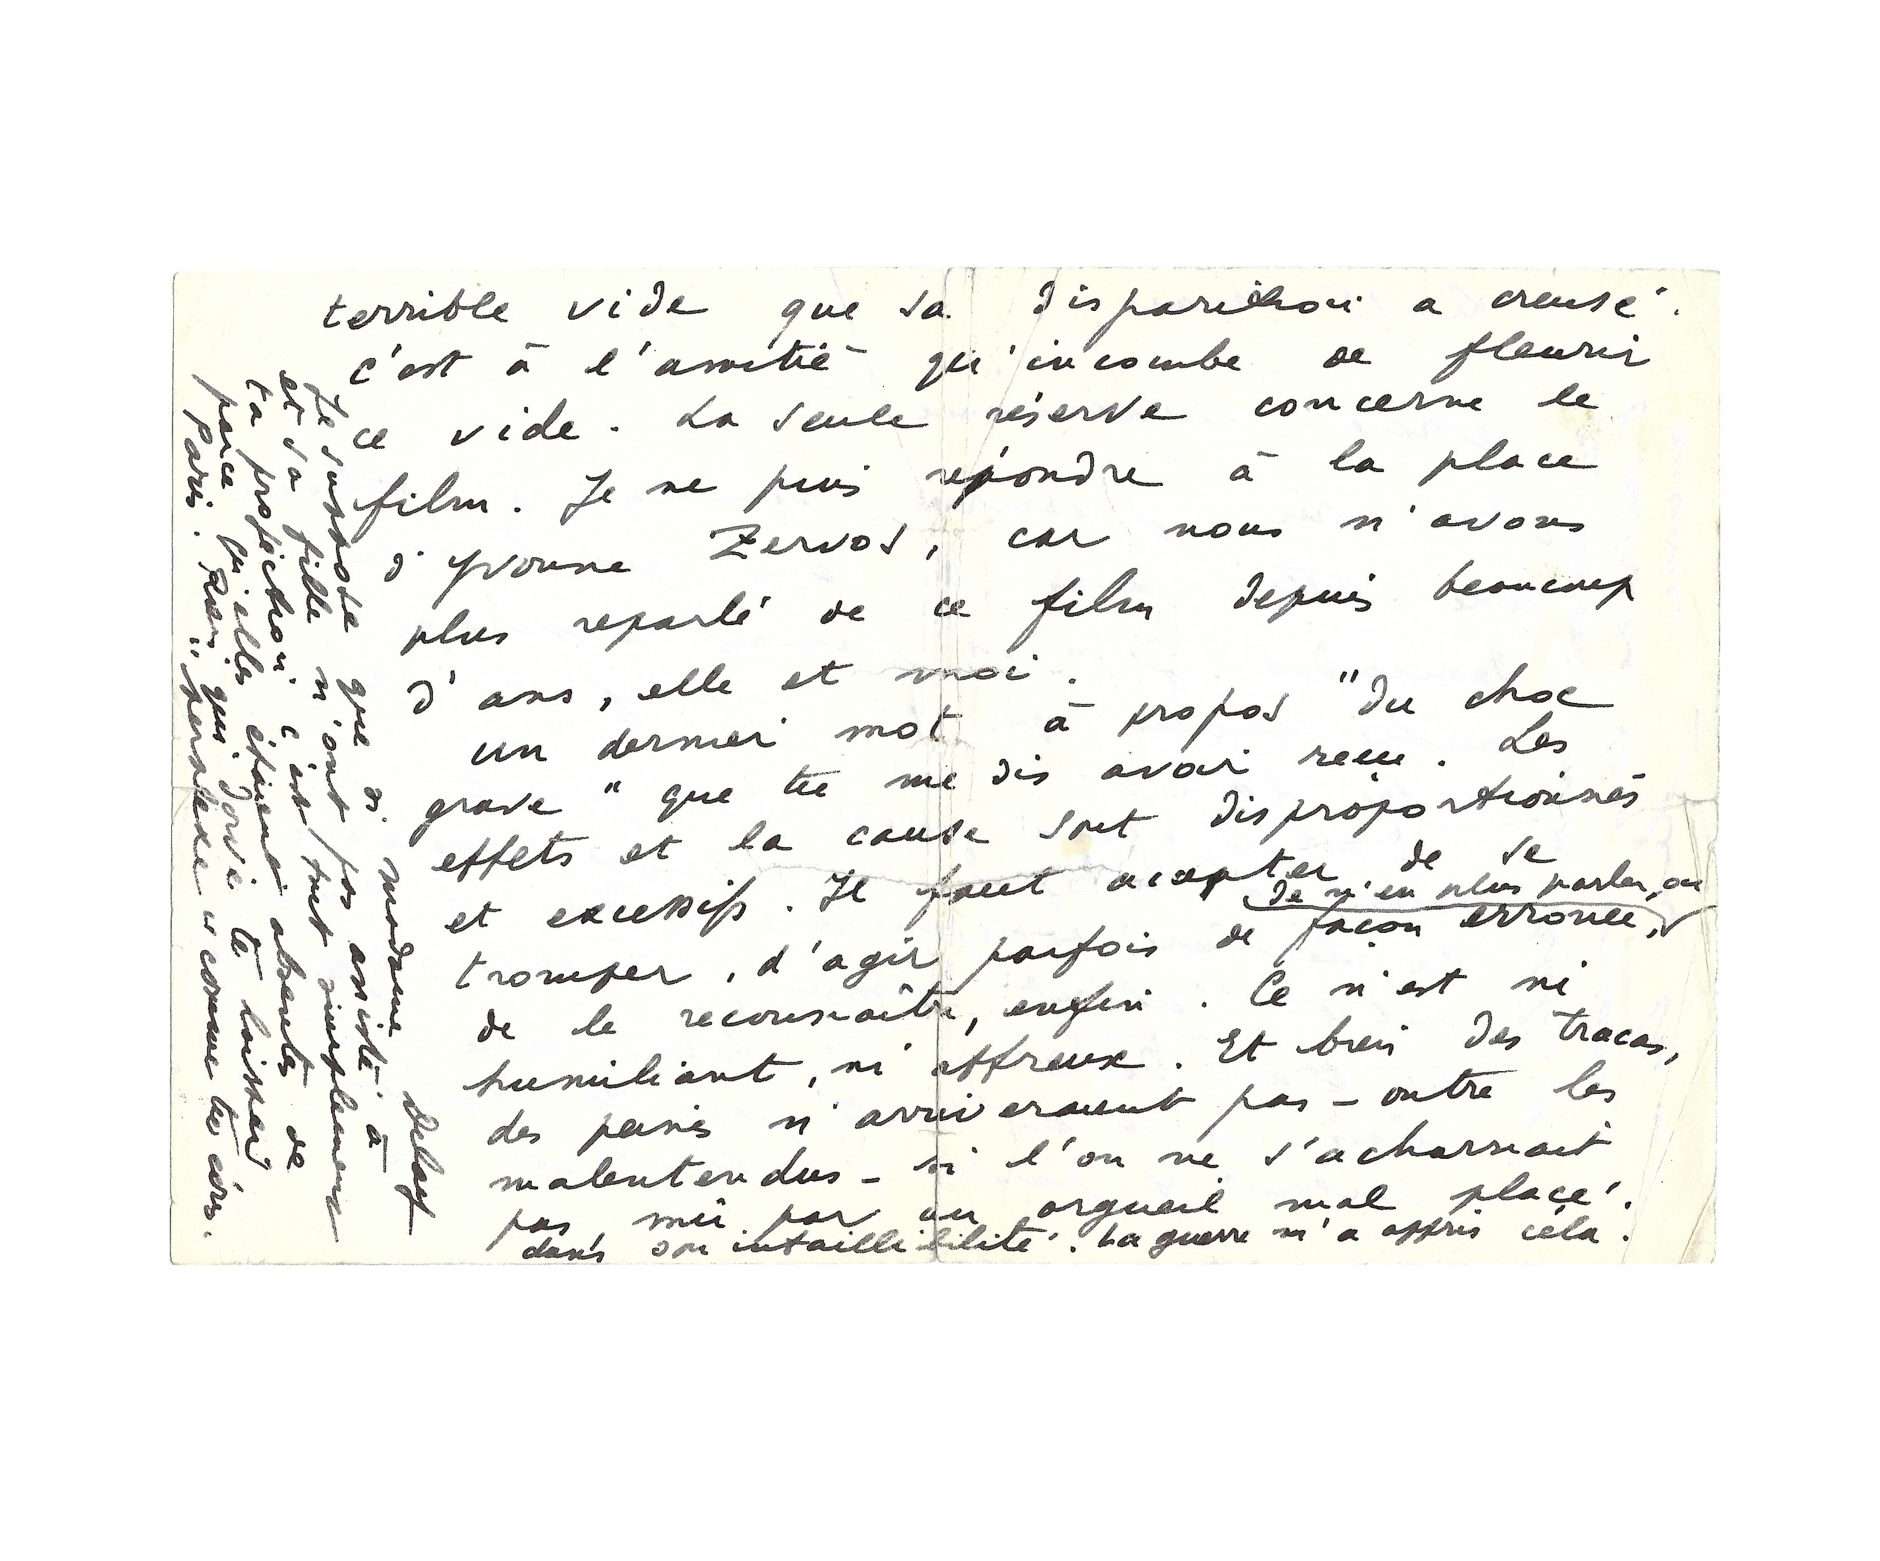 terrible vide que sa disparition a creusé.
C'est à l'amitié qu'incombe de fleurir
ce vide. La seule réserve concerne le
film. Je ne puis répondre à la place
d'Yvonne Zervos, car nous n'avons
plus reparlé de ce film depuis beaucoup
d'ans, elle et moi.
Un dernier mot à propos "du choc
grave" que tu me dis avoir reçu. Les
effets et la cause sont disproportionnés
et excessifs. Il faut accepter de se
tromper, d'agir parfois de façon erronée,
de n'en plus parler, ou
de le reconnaître, enfin. Ce n'est ni
humiliant, ni affreux. Et bien des tracas,
des peines n'arriveraient pas - outre les
malentendus - si l'on ne s'acharnait
pas mû par un orgueil mal placé.
dans son infaillibilité. La guerre m'a appris cela.
Je suppose que si madame Delay
et sa fille n'ont pas assisté à
ta projection c'est tout simplement
parce qu'elles étaient absentes de
Paris. Rien qui doive te laisser
"perplexe" comme tu écris.